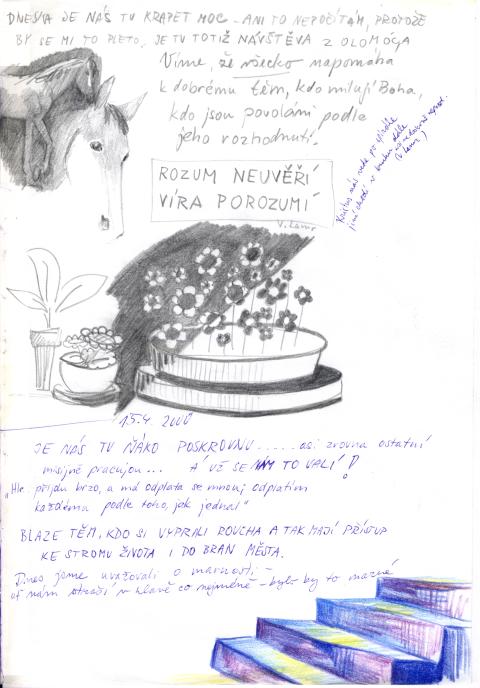 DNESKA JE NÁS TU KRAPET MOC - ANI TO NEPOČÍTÁM, PROTOŽE
BY SE MI TO PLETO, JE TU TOTIŽ NÁVŠTĚVA Z OLOMÓCA
Víme, že všecko napomáhá
k dobrému těm, kdo milují Boha,
kdo jsou povoláni podle
jeho rozhodnutí.
ROZUM NEUVĚŘÍ
VÍRA POROZUMÍ
V. Lamr
Kristus nás vede po
jiná v kruhu dále
15.4. 2000
JE NÁS TU ŇÁKO POSKROVNU..... asi zrovna ostatní
misijně pracujou... A UŽ SE NÁM TO VALÍ!
„Hle přijdu brzo, a má odplata se mnou, odplatím
každému podle toho, jak jednal"
BLAZE TĚM, KDO SI VYPRALI ROUCHA A TAK MAJÍ PŘÍSTUP
KE STROMU ŽIVOTA I DO BRAN MĚSTA.
Dnes jsme uvažovali o marnosti -
ať nám straší v hlavě co nejméně - bylo by to marné